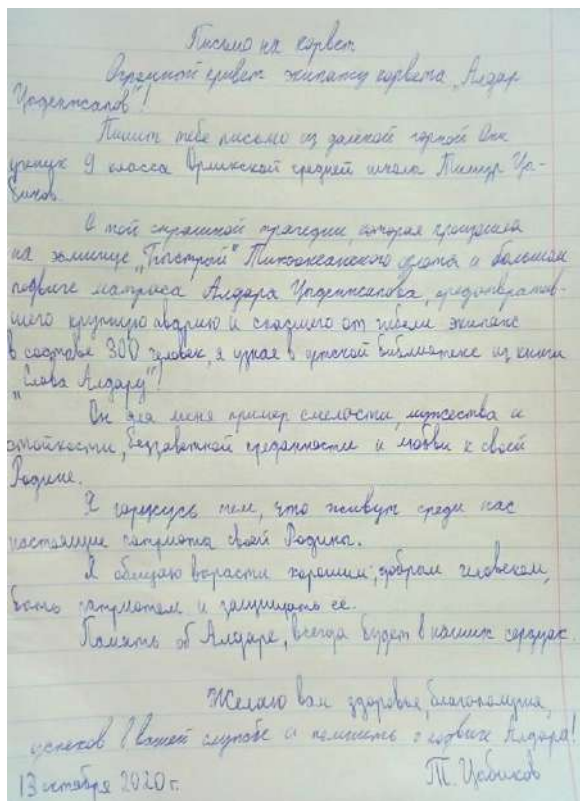 Письмо на корвет
Огромный привет экипажу корвета „Алдар
Цыденжапов"!
Пишет тебе письмо из далекой горной Оки
ученик 9 класса Орликской средней школы Тимур Цы-
биков.
О той страшной трагедии, которая произошла
на эсминце „Быстрый" Тихоокеанского флота и большом
подвиге матроса Алдара Цыденжапова, предотвратив-
шего крупную аварию и спасшего от гибели экипаж
в составе 300 человек, я узнал в детской библиотеке из книги
„Слава Алдару"!
Он для меня пример смелости, мужества и
стойкости, беззаветной преданности и любви к своей
Родине.
Я горжусь тем, что живут среди нас
настоящие патриоты своей Родины.
Я обещаю вырасти хорошим, добрым человеком,
быть патриотом и защищать ее.
Память об Алдаре, всегда будет в наших сердцах.
Желаю вам здоровья, благополучия,
успехов в вашей службе и помнить о подвиге Алдара!
13 октября 2020 г. Т. Цыбиков